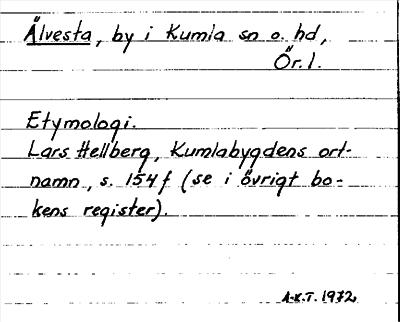 Älvesta, by i Kumla sn o. hd,
Ör. l.
Etymologi.
Lars Hellberg, Kumlabygdens ort-
namn, s. 154 f (se i övrigt bo-
kens register).
A-K.T. 1972.